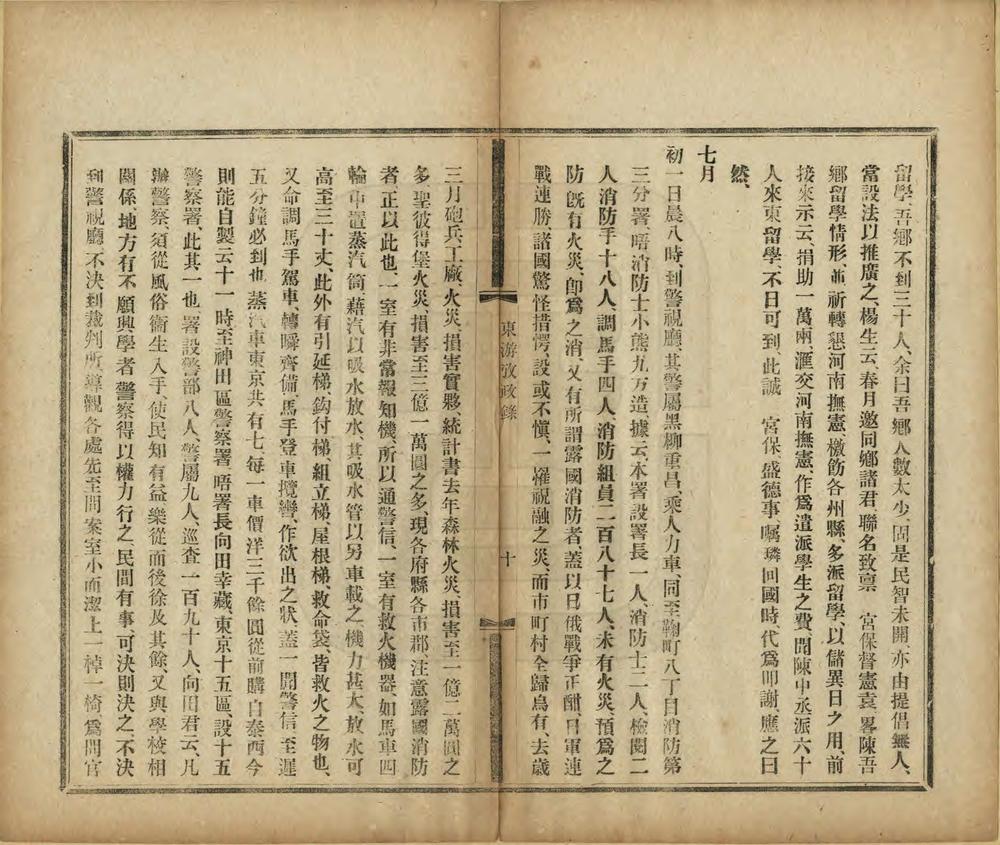 留學、吾鄉不到三十人、余曰吾鄉人數太少、固是民智未開、亦由提倡無人、
當設法以推廣之、楊生云、春月邀同鄉諸君、聯名致禀　宮保督憲袁、畧陳吾
鄉留學情形、並祈轉懇河南撫憲、檄飭各州縣、多派留學、以儲異日之用、前
接來示云、捐助一萬兩、滙交河南撫憲、作爲遣派學生之費、聞陳中丞派六十
人來東留學、不日可到、此誠　宮保盛德事、囑璘回國時、代爲叩謝、應之曰
然、
七月
初一日晨八時、到警視廳、其警屬黑柳重昌、乘人力車、同至麴町八丁目消防第
三分署、晤消防士小熊九万造、據云、本署設署長一人、消防士二人、檢閱二
人、消防手十八人、調馬手四人、消防組員二百八十七人、未有火災、預爲之
防、旣有火災、卽爲之消、又有所謂露國消防者、蓋以日俄戰爭正酣、日軍連
戰連勝、諸國驚怪措愕、設或不愼、一罹祝融之災、而市町村全歸烏有、去歲
東游攷政錄
十
三月砲兵工廠、火災、損害實夥、統計書去年森林火災、損害至一億二萬圓之
多、聖彼得堡火災、損害至三億一萬圓之多、現各府縣各市郡、注意露國消防
者、正以此也、一室有非常報知機、所以通警信、一室有救火機器、如馬車四
輪、中置蒸汽筒、藉汽以吸水放水、其吸水管以另車載之、機力甚大、放水可
高至三十丈、此外有引延梯、鈎付梯、組立梯、屋根梯、救命袋、皆救火之物也、
又命調馬手駕車、轉瞬齊備、馬手登車攬轡、作欲出之狀、蓋一聞警信、至遲
五分鐘必到也、蒸汽車東京共有七、每一車價洋三千餘圓、從前購自泰西、今
則能自製云、十一時至神田區警察署、晤署長向田幸藏、東京十五區、設十五
警察署、此其一也、署設警部八人、警屬九人、巡查一百九十人、向田君云、凡
辦警察、須從風俗衞生入手、使民知有益樂從、而後徐及其餘、又與學校相
關係、地方有不願興學者、警察得以權力行之、民間有事、可決則決之、不決
到警視廳、不決到裁判所、導觀各處、先至問案室、小而潔、上一棹一椅、爲問官